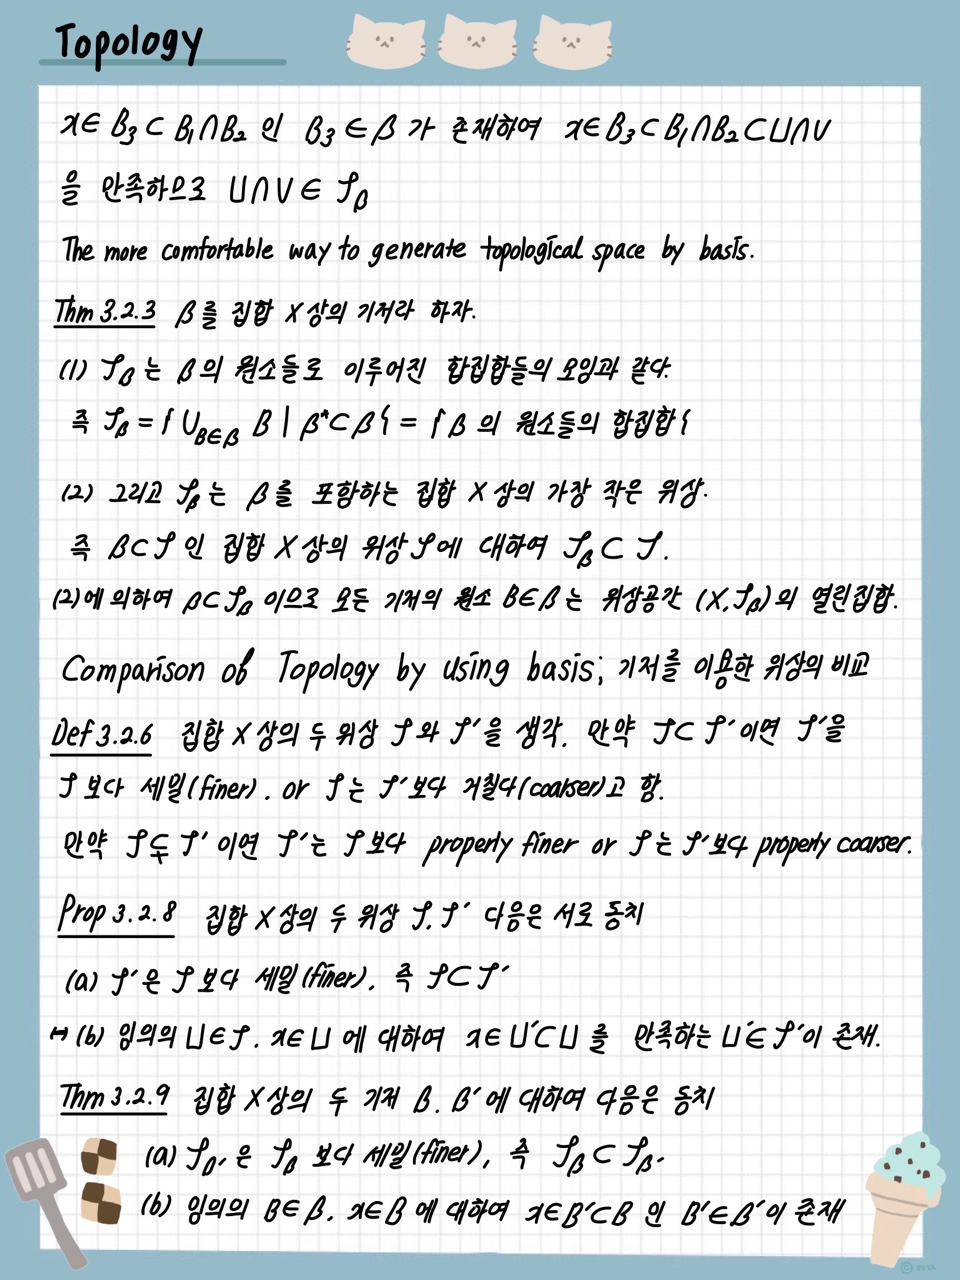 Topology
x∈B₃⊂B₁∩B₂ 인 B₃∈β 가 존재하여 x∈B₃⊂B₁∩B₂⊂U∩V
을 만족하므로 U∩V∈𝒯_β
The more comfortable way to generate topological space by basis.
Thm 3.2.3 β를 집합 X상의 기저라 하자.
(1) 𝒯_β는 β의 원소들로 이루어진 합집합들의 모임과 같다.
즉 𝒯_β = { ∪_{B∈β} B | β*⊂β } = { β 의 원소들의 합집합 }
(2) 그리고 𝒯_β는 β를 포함하는 집합 X상의 가장 작은 위상.
즉 β⊂𝒯 인 집합 X상의 위상 𝒯에 대하여 𝒯_β⊂𝒯.
(2)에 의하여 β⊂𝒯_β 이므로 모든 기저의 원소 B∈β는 위상공간 (X,𝒯_β)의 열린집합.
Comparison of Topology by using basis; 기저를 이용한 위상의 비교
Def 3.2.6 집합 X상의 두 위상 𝒯와 𝒯′을 생각. 만약 𝒯⊂𝒯′이면 𝒯′을
𝒯보다 세밀(finer). or 𝒯는 𝒯′보다 거칠다(coarser)고 함.
만약 𝒯⊊𝒯′이면 𝒯′는 𝒯보다 properly finer or 𝒯는 𝒯′보다 properly coarser.
Prop 3.2.8 집합 X상의 두 위상 𝒯, 𝒯′ 다음은 서로 동치
(a) 𝒯′은 𝒯보다 세밀(finer), 즉 𝒯⊂𝒯′
↔ (b) 임의의 U∈𝒯, x∈U에 대하여 x∈U′⊂U를 만족하는 U′∈𝒯′이 존재.
Thm 3.2.9 집합 X상의 두 기저 β, β′에 대하여 다음은 동치
(a) 𝒯_β′은 𝒯_β보다 세밀(finer), 즉 𝒯_β⊂𝒯_β′
(b) 임의의 B∈β, x∈B에 대하여 x∈B′⊂B 인 B′∈β′이 존재